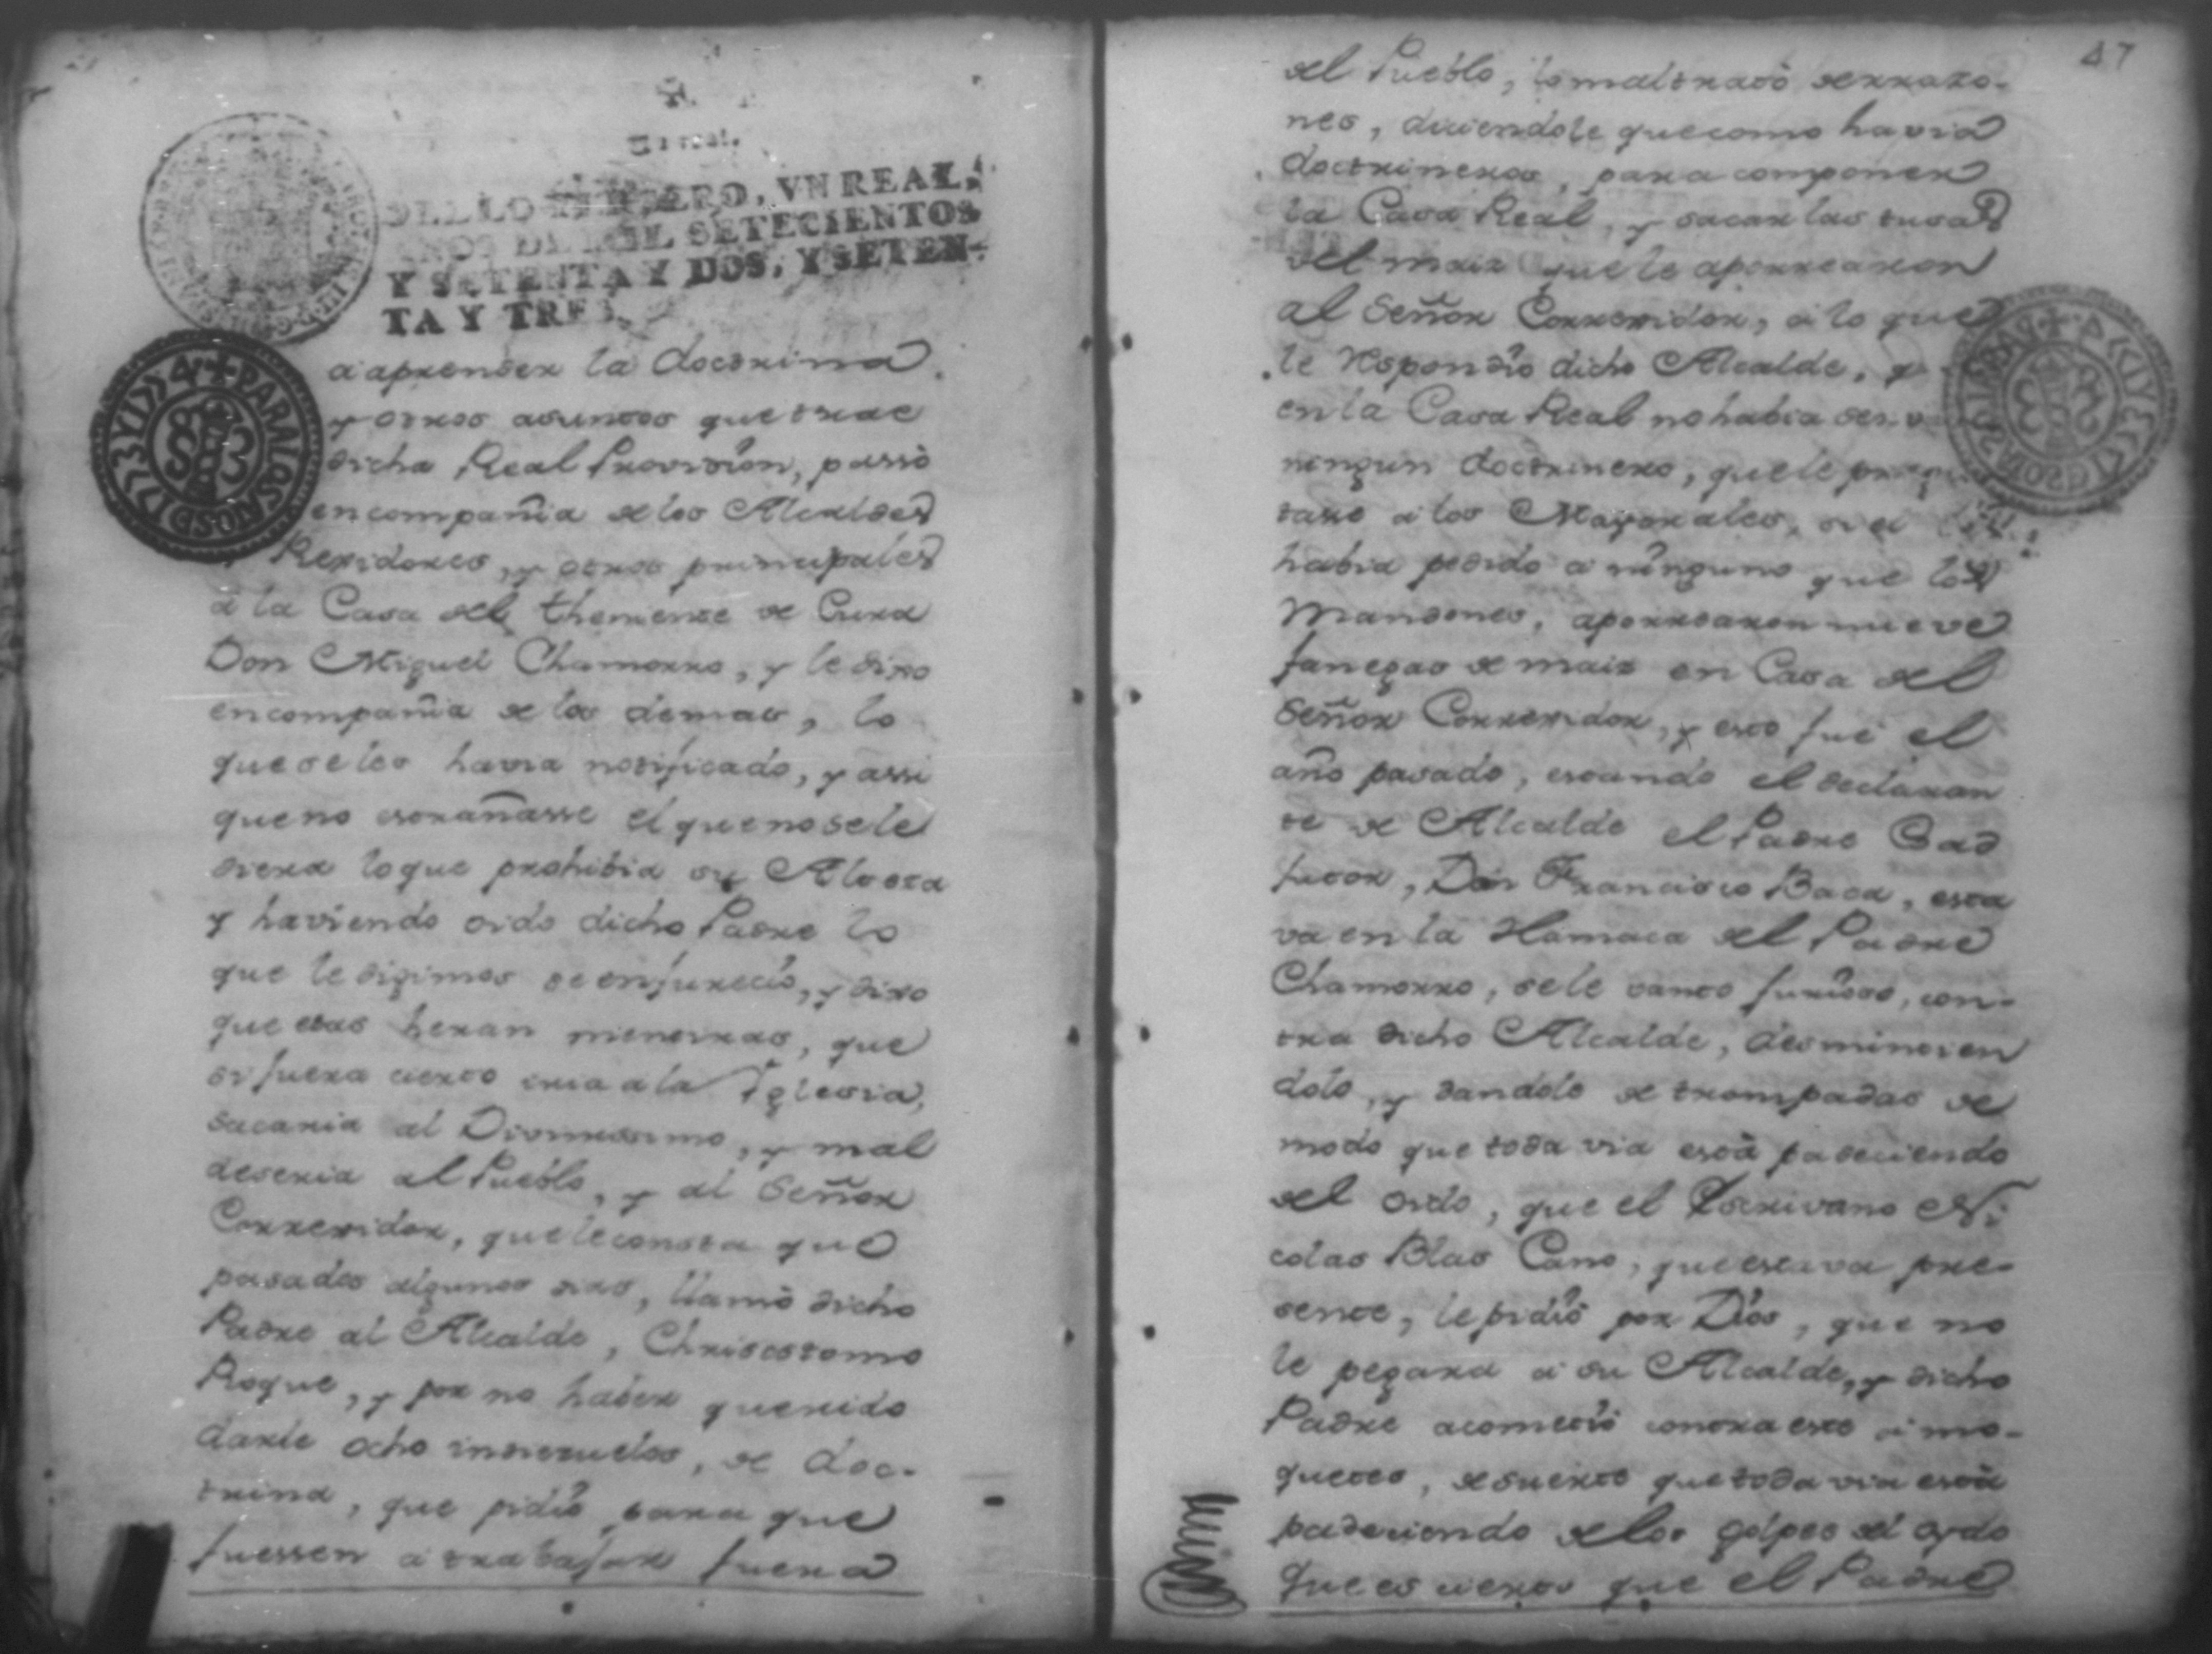 Un real.
SELLO TERCERO, VN REAL,
AÑOS DE MIL SETECIENTOS
Y SETENTA Y DOS, Y SETEN-
TA Y TRES.
PARALOSANOSD1774Y1775
a aprender la doctrina
y otros asuntos que trae
dicha Real Provision, passò
en compañia de los Alcaldes
Rexidores, y otros principales
a la Casa del theniente de Cura
Don Miguel Chamorro, y le dixo
en compañia de los demas, lo
que se les havia notificado, y assi
que no estrañasse el que no se le
diera lo que prohibia su Alteza
y haviendo oido dicho Padre lo
que le digimos se enfureciò, y dixo
que esas heran mentiras, que
si fuera cierto iria a la Iglesia,
sacaria al Divinissimo, y mal
deseria al Pueblo, y al Señor
Correxidor, que le consta que
pasados algunos dias, llamò dicho
Padre al Alcalde, Chrisostomo
Roque, y por no haber querido
darle ocho indiezuelos, de doc-
trina, que pidiò para que
fuessen a trabajar fuera
47
del Pueblo, lo maltratò de razo-
nes, diciendole que como havia
doctrineros, para componer
la Casa Real, y sacar las tusas
del maiz que le aporrearon
al Señor Correxidor, a lo que
le respondio dicho Alcalde, q
en la Casa Real no habia
ningun doctrinero, que le pregun
tase a los Mayorales, si el
habia pedido a ninguno que los
Mandones, aporrearon nueve
fanegas de maiz en Casa del
Señor Correxidor, y esto fue el
año pasado, estando el declaran
te de Alcalde el Padre Coad
jutor, Don Francisco Baca, esta
va en la Hamaca del Padre
Chamorro, se le vanto furioso, con-
tra dicho Alcalde, desmintien
dolo, y dandole de trompadas de
modo que toda via està padeciendo
del oido, que el Escrivano Ni
colas Blas Cano, que estava pre-
sente, le pidiò por Dios, que no
le pegara a su Alcalde, y dicho
Padre acometiò contra este a mo-
quetes, de suerte que toda via està
padeciendo de los golpes del oydo
Que es cierto que el Padre